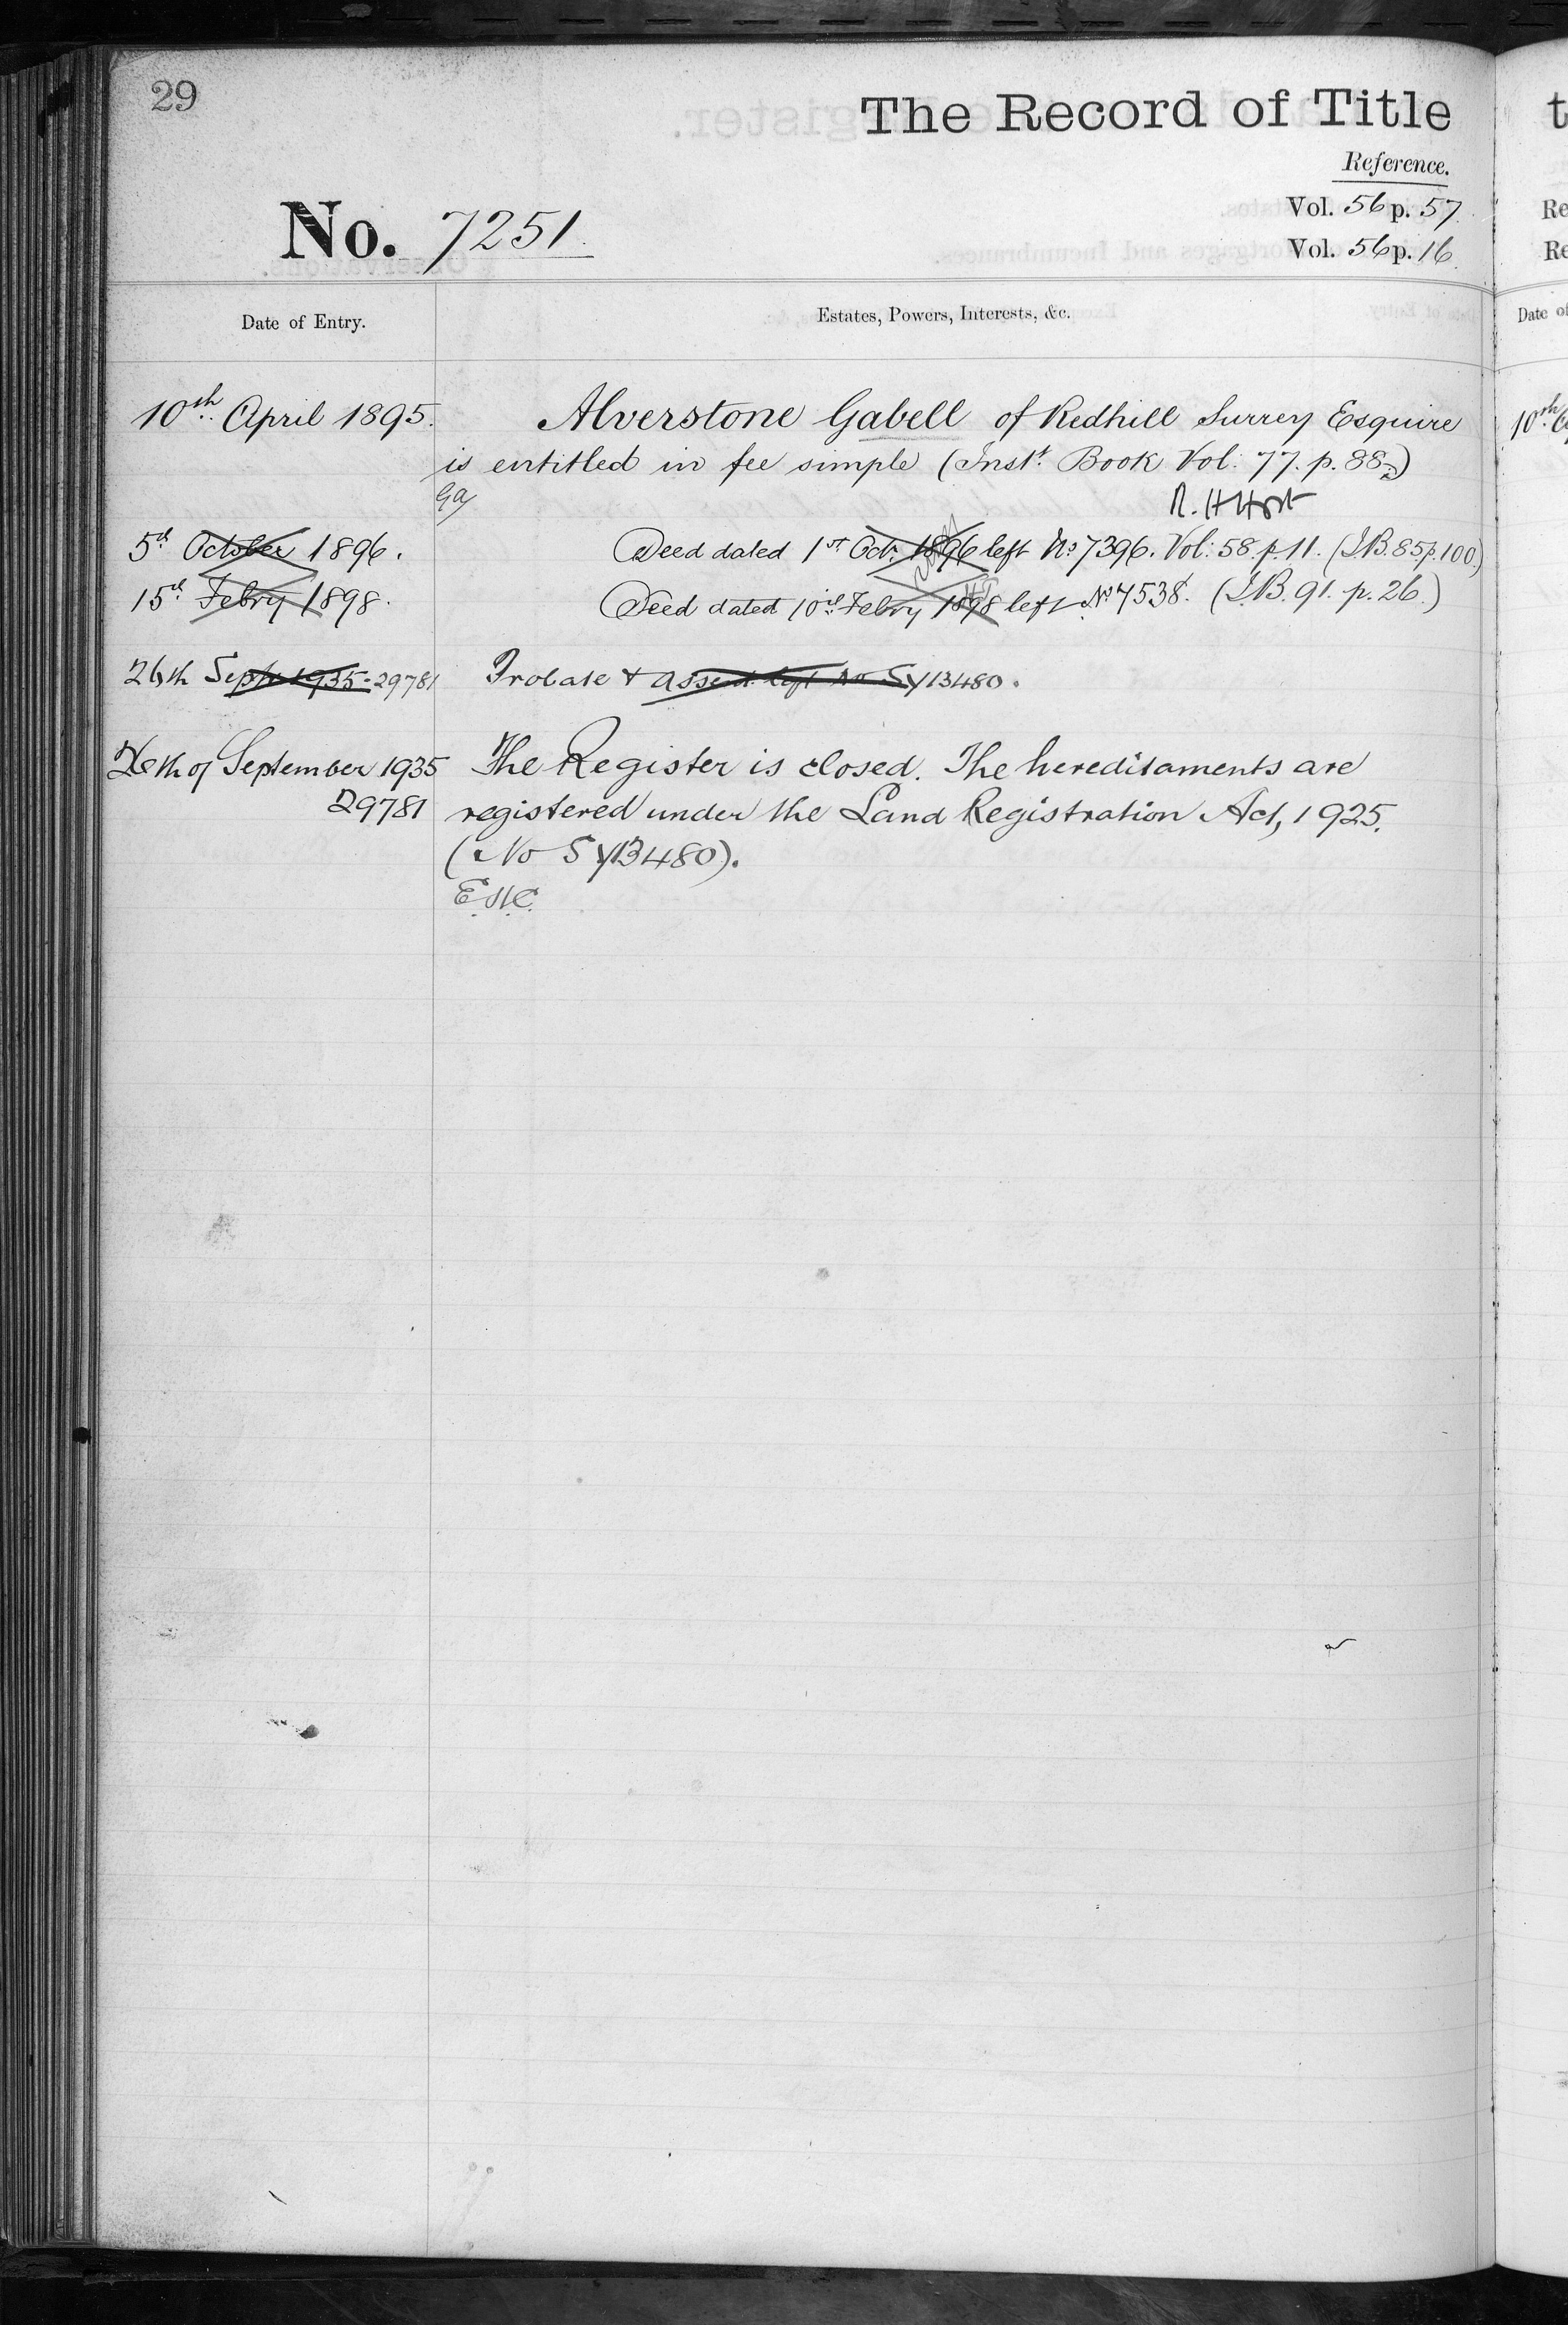 29
The Record of Title
Reference.
No. 7251.
Vol. 56 p. 57
Vol. 56 p. 16
Date of Entry.
Estates, Powers, Interests, &c.
10th April 1895.
Alverstone Gabell of Redhill Surrey Esquire
is entitled in fee simple (Inst. Book Vol. 77. p. 88.)
R. H Holt
5th October 1896.
Deed dated 1st Octr. 1896 left No 7396. Vol: 58. p. 11. (I.B. 85 p. 100.)
15th Febry 1898.
Deed dated 10th Febry 1898 left No 7538. (I.B. 91. p. 26.)
26th Sept 1935 - 29781
Probate + Assent left No Sy 13480.
26th of September 1935
29781
The Register is closed. The hereditaments are
registered under the Land Registration Act, 1925.
(No Sy 13480).
Date of
10th